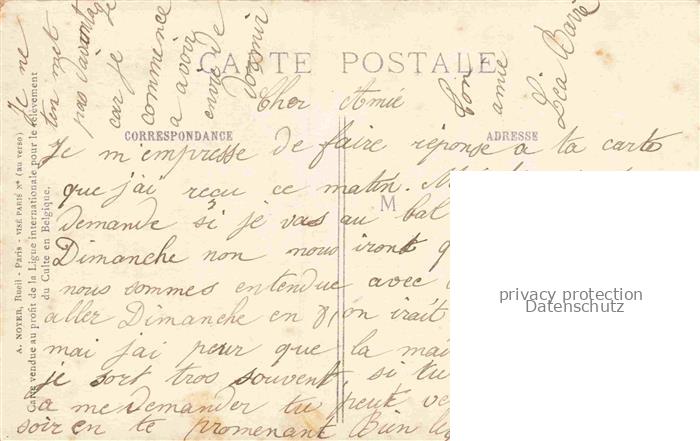 Je ne
t'en met
pas d'avantage
car je
commence
a avoir
envie de
dormir
Ton
amie
Léa Barré
CARTE POSTALE
Cher Amie
CORRESPONDANCE
ADRESSE
Je m'empresse de faire réponse a ta carte
que j'ai reçu ce matin. M
demande si je vas au bal
M
Dimanche non nous iront
nous sommes entendue avec
aller Dimanche en 8, on irait
mai j'ai peur que la mai
je sort tros souvent si tu
a me demander tu peut ve
soir en te promenant Bien le
A. NOYER, Rueil - Paris - VISÉ PARIS N° (au verso)
Carte vendue au profit de la Ligue internationale pour le relèvement
du Culte en Belgique.
privacy protection
Datenschutz